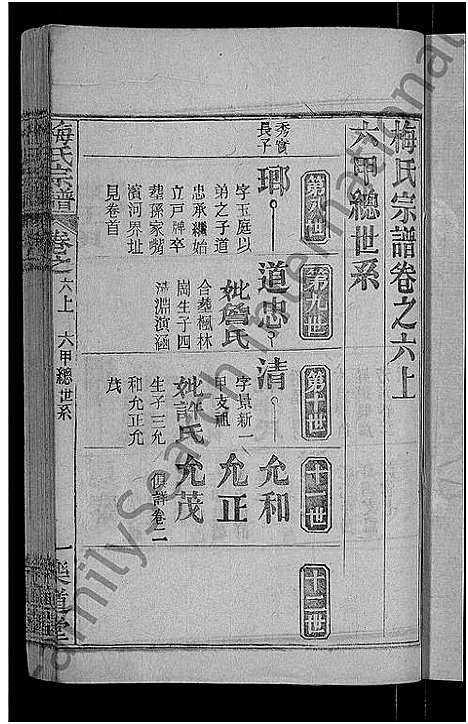 梅氏宗譜卷之六上
六甲總世系
第八世
第九世
第十世
十一世
十二世
秀實
長子
瑯
字玉庭以
弟之子道
忠承繼始
立戶牌卒
塟孫家嘴
濱河界址
見卷首
道忠
妣詹氏
合塟楓林
崗生子四
清淵演涵
清
字景新一
甲支祖
妣許氏
生子三允
和允正允
茂
允和
允正
允茂
俱詳卷二
梅氏宗譜
卷之六上
六甲總世系
一
樂道堂
FamilySearch International